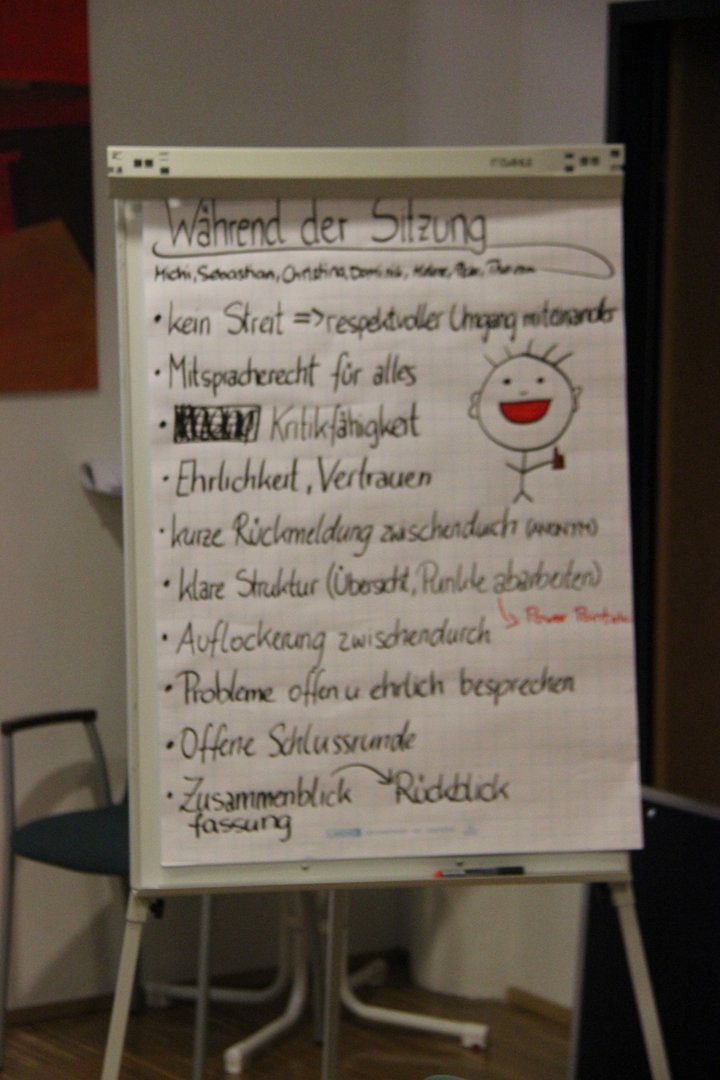 Während der Sitzung
Michi, Sebastian, Christina, Dominik,
• kein Streit => respektvoller Umgang miteinander
• Mitspracherecht für alles
• Kritikfähigkeit
• Ehrlichkeit, Vertrauen
• kurze Rückmeldung zwischendurch (ANONYM)
• klare Struktur (Übersicht, Punkte abarbeiten)
↳ Power Point
• Auflockerung zwischendurch
• Probleme offen u ehrlich besprechen
• Offene Schlussrunde
• Zusammenblick → Rückblick
fassung